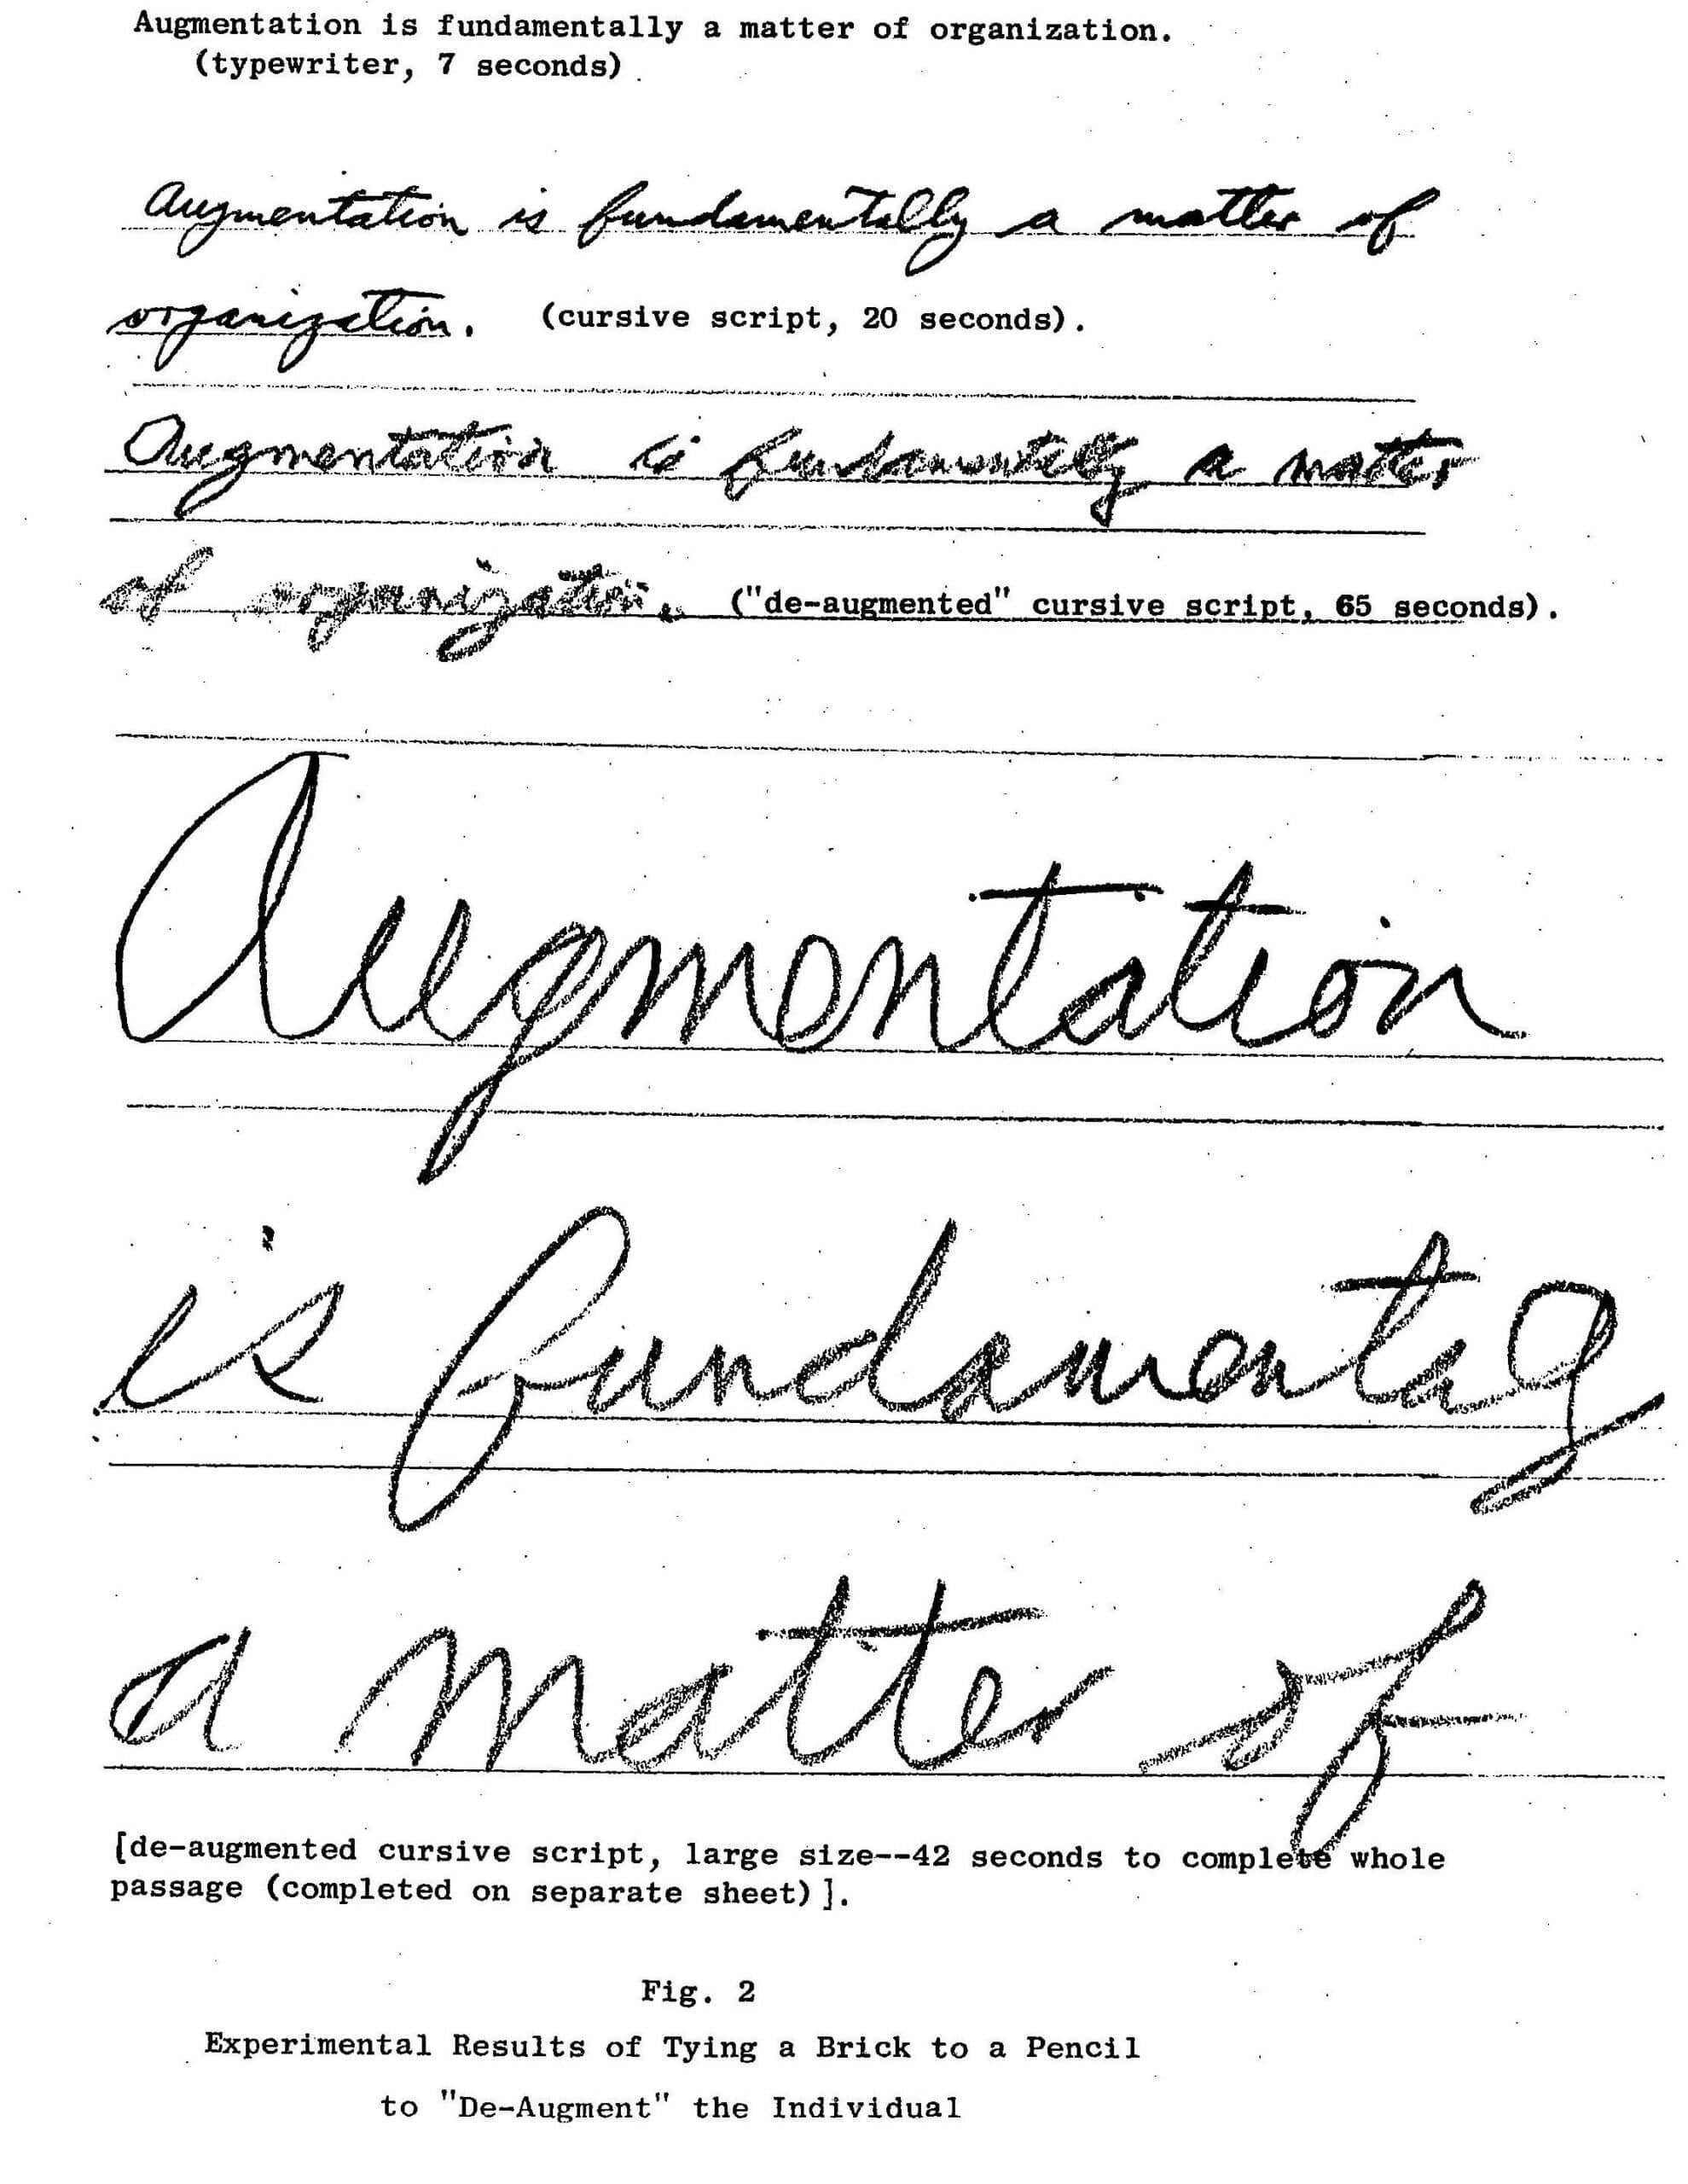 Augmentation is fundamentally a matter of organization.
(typewriter, 7 seconds)
Augmentation is fundamentally a matter of
organization. (cursive script, 20 seconds).
Augmentation is fundamentally a matter
of organization. ("de-augmented" cursive script, 65 seconds).
Augmentation
is fundamentaly
a matter of
[de-augmented cursive script, large size--42 seconds to complete whole
passage (completed on separate sheet)].
Fig. 2
Experimental Results of Tying a Brick to a Pencil
to "De-Augment" the Individual